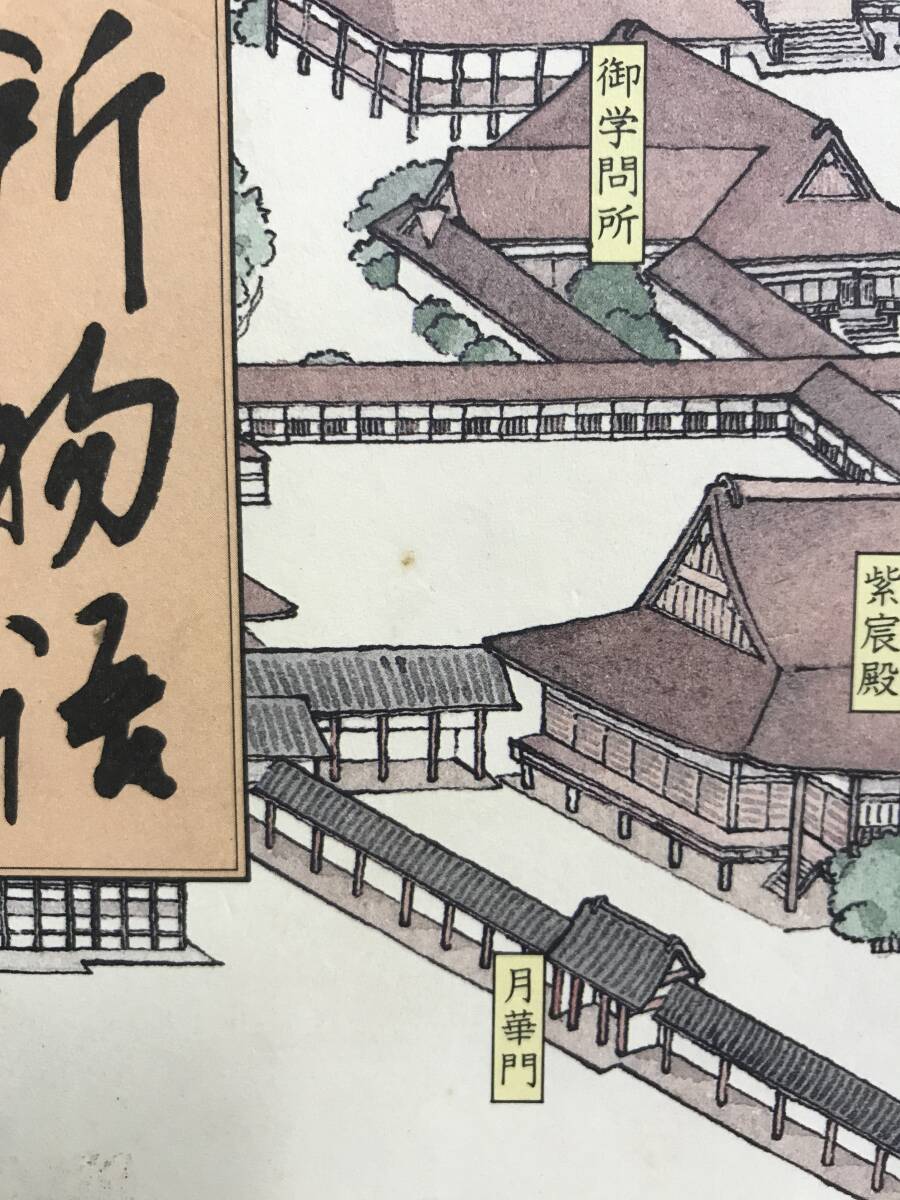 所物語
御学問所
紫宸殿
月華門